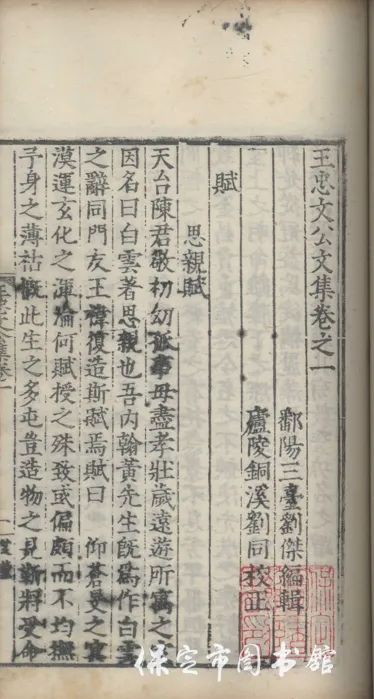 王忠文公文集卷之一
鄱陽三臺劉傑編輯
廬陵銅溪劉同校正
賦
思親賦
天台陳君敬初幼孤事母盡孝壯歲遠遊所寓之
因名曰白雲著思親也吾內翰黃先生旣爲作白雲
之辭同門友王褘復造斯賦焉賦曰 仰蒼旻之寘
漠運玄化之渾淪何賦授之殊致或偏頗而不均撫
子身之薄祜慨此生之多屯豈造物之見斳將受命
保定市图书馆